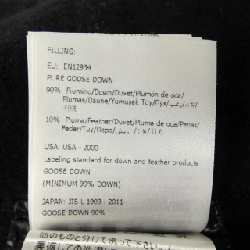 FILLING:
EU: EN12934
PURE GOOSE DOWN
90% Piumino/Down/Duvet/Plumón de oca/
Plumas/Daune/
10% Piume/Feather/Duvet/Plume de oca/Penas/
USA: USA - 2000
Labeling standard for down and feather products
GOOSE DOWN
(MINIMUM 90% DOWN)
JAPAN: JIS L 1903 - 2011
GOOSE DOWN 90%
他のものと分けて洗って下さい